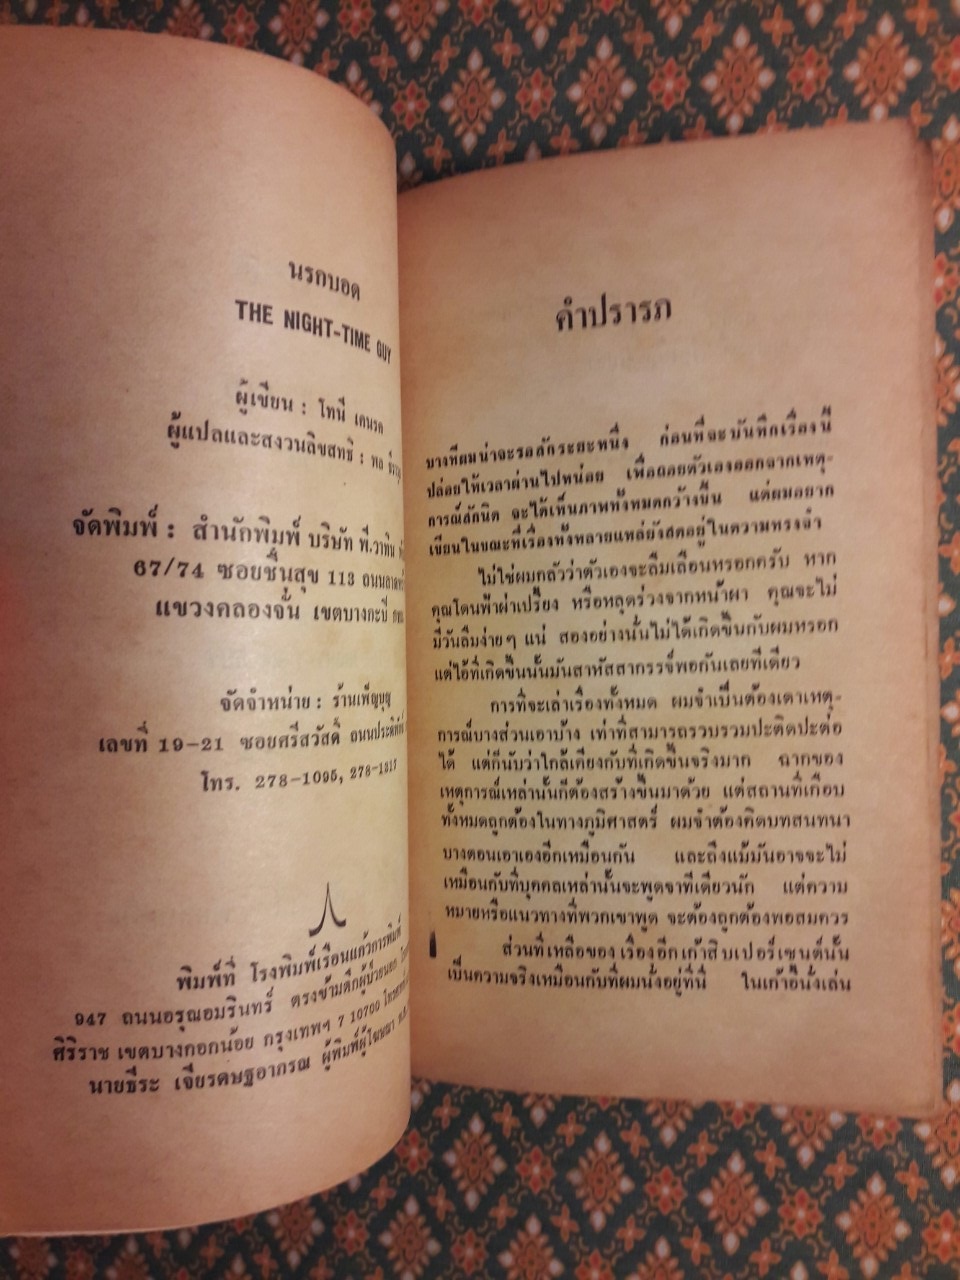 นรกบอด
THE NIGHT-TIME GUY
ผู้เขียน : โทนี เคนรค
ผู้แปลและสงวนลิขสิทธิ์ : พล
จัดพิมพ์ : สำนักพิมพ์ บริษัท พี.วาทิน
67/74 ซอยชื่นสุข 113
แขวงคลองจั่น เขตบางกะปี
จัดจำหน่าย : ร้านเพ็ญบุญ
เลขที่ 19-21 ซอยศรีสวัสดิ์
โทร. 278-1095, 278-1317
พิมพ์ที่ โรงพิมพ์เรือนแก้วการพิมพ์
947 ถนนอรุณอมรินทร์ ตรงข้ามตึกผู้ป่วยนอก
ศิริราช เขตบางกอกน้อย กรุงเทพฯ 7 10700
นายธีระ เจียรดษฐอาภรณ ผู้พิมพ์ผู้โฆษณา
คำปรารภ
บางทีผมน่าจะรอสักระยะหนึ่ง ก่อนที่จะบันทึกเรื่องนี้
ปล่อยให้เวลาผ่านไปหน่อย เพื่อถอยตัวเองออกจากเหตุ-
การณ์สักนิด จะได้เห็นภาพทั้งหมดกว้างขึ้น แต่ผมอยาก
เขียนในขณะที่เรื่องทั้งหลายแหล่ยังสดอยู่ในความทรงจำ
ไม่ใช่ผมกลัวว่าตัวเองจะลืมเลือนหรอกครับ หาก
คุณโดนฟ้าผ่าเปรี้ยง หรือหลุดร่วงจากหน้าผา คุณจะไม่
มีวันลืมง่ายๆ แน่ สองอย่างนั่นไม่ได้เกิดขึ้นกับผมหรอก
แต่ไอ้ที่เกิดขึ้นนั้นมันสาหัสสากรรจ์พอกันเลยทีเดียว
การที่จะเล่าเรื่องทั้งหมด ผมจำเป็นต้องเดาเหตุ-
การณ์บางส่วนเอาบ้าง เท่าที่สามารถรวบรวมปะติดปะต่อ
ได้ แต่ก็นับว่าใกล้เคียงกับที่เกิดขึ้นจริงมาก ฉากของ
เหตุการณ์เหล่านั้นก็ต้องสร้างขึ้นมาด้วย แต่สถานที่เกือบ
ทั้งหมดถูกต้องในทางภูมิศาสตร์ ผมจำต้องคิดบทสนทนา
บางตอนเอาเองอีกเหมือนกัน และถึงแม้มันอาจจะไม่
เหมือนกับที่บุคคลเหล่านั้นจะพูดจาทีเดียวนัก แต่ความ
หมายหรือแนวทางที่พวกเขาพูด จะต้องถูกต้องพอสมควร
ส่วนที่เหลือของเรื่องอีกเก้าสิบเปอร์เซนต์นั้น
เป็นความจริงเหมือนกับที่ผมนั่งอยู่ที่นี่ ในเก้าอี้นั่งเล่น